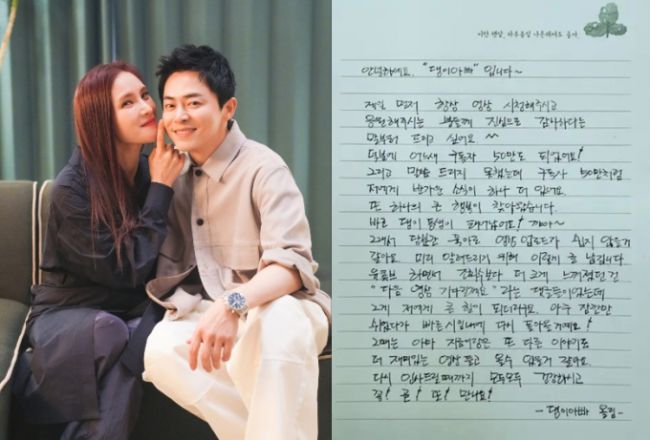 안녕하세요. "댕이아빠" 입니다~
제일 먼저 항상 영상 시청해주시고
응원해주시는 분들께 진심으로 감사하다는
말부터 드리고 싶어요 ^^
덕분에 어느새 구독자 50만도 되었어요!
그리고 말씀 드리지 못했는데 구독자 50만처럼
저에게 반가운 소식이 하나 더 있어요.
또 하나의 큰 행복이 찾아왔습니다.
바로 댕이 동생이 태어났어요! 꺄아~
그래서 당분간 육아로 영상 업로드가 쉽지 않을거
같아요 미리 알려드리기 위해 이렇게 글 남깁니다.
유튜브 하면서 조회수보다 더 크게 느껴졌던 건
"다음 영상 기다릴게요" 라는 댓글들이었는데
그게 저에게 큰 힘이 되더라구요. 아주 잠깐만
쉬었다가 빠른 시일내에 다시 돌아올게요!
그때는 아마 지금이랑은 또 다른 이야기로
더 재미있는 영상 들고 올수 있을거 같아요.
다시 인사드릴때까지 모두모두 건강하시고
꼭! 곧! 또! 만나요!
- 댕이아빠 올림 -